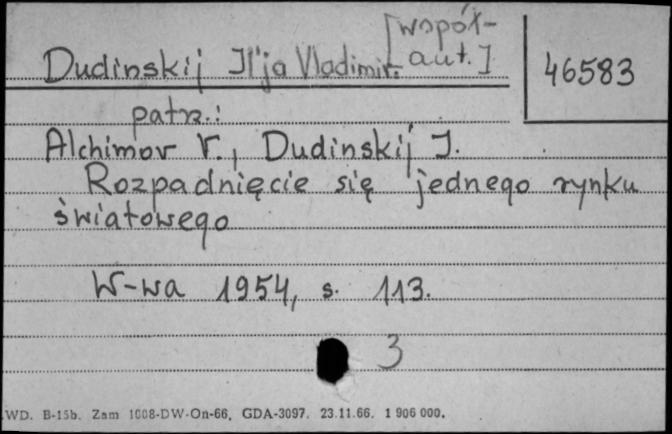 [współ-
Dudinskij Il'ja Vladimir. aut.] 46583
patrz.:
Alchimov V., Dudinskij I.
Rozpadnięcie się jednego rynku
światowego
W-wa 1954, s. 113.
3
WD. B-15b. Zam 1008-DW-On-66. GDA-3097. 23.11.66. 1 906 000.